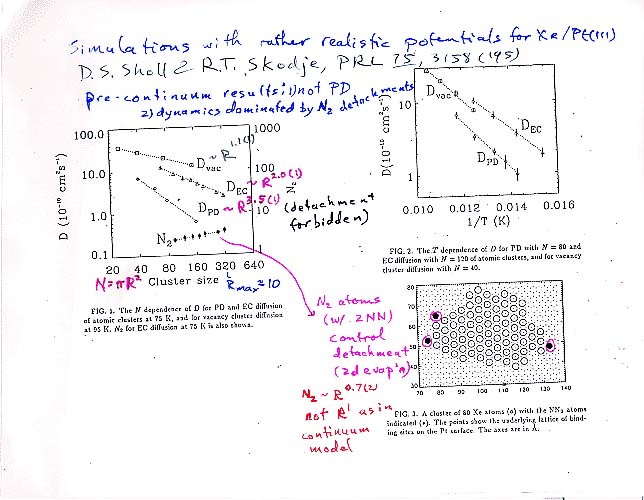 Simulations with rather realistic potentials for Xe/Pt(111)
D.S. Sholl & R.T. Skodje, PRL 75, 3158 ('95)
pre-continuum results: 1) not PD
2) dynamics dominated by N₂ detachments
1000
100.0
~ R^1.1(1)
D_vac
100
10.0
D_EC ~ R^2.0(1)
N₂
D (10⁻¹⁰ cm²s⁻¹)
D_PD ~ R^3.5(1)
10
(detachment
forbidden)
1.0
N₂
0.1
1
20 40 80 160 320 640
N=πR² Cluster size
R_max≈10
FIG. 1. The N dependence of D for PD and EC diffusion
of atomic clusters at 75 K, and for vacancy cluster diffusion
at 95 K. N₂ for EC diffusion at 75 K is also shown.
D_vac
10
D_EC
D(10⁻¹⁰ cm²s⁻¹)
D_PD
1
0.010 0.012 0.014 0.016
1/T (K)
FIG. 2. The T dependence of D for PD with N = 80 and
EC diffusion with N = 120 of atomic clusters, and for vacancy
cluster diffusion with N = 40.
N₂ atoms
(w/ 2NN)
control
detachment
(2d evap'n)
N₂ ~ R^0.7(2)
not R¹ as in
continuum
model
80
70
60
50
40
30
70 80 90 100 110 120 130 140
FIG. 3. A cluster of 80 Xe atoms (o) with the NN₂ atoms
indicated (•). The points show the underlying lattice of bind-
ing sites on the Pt surface. The axes are in Å.